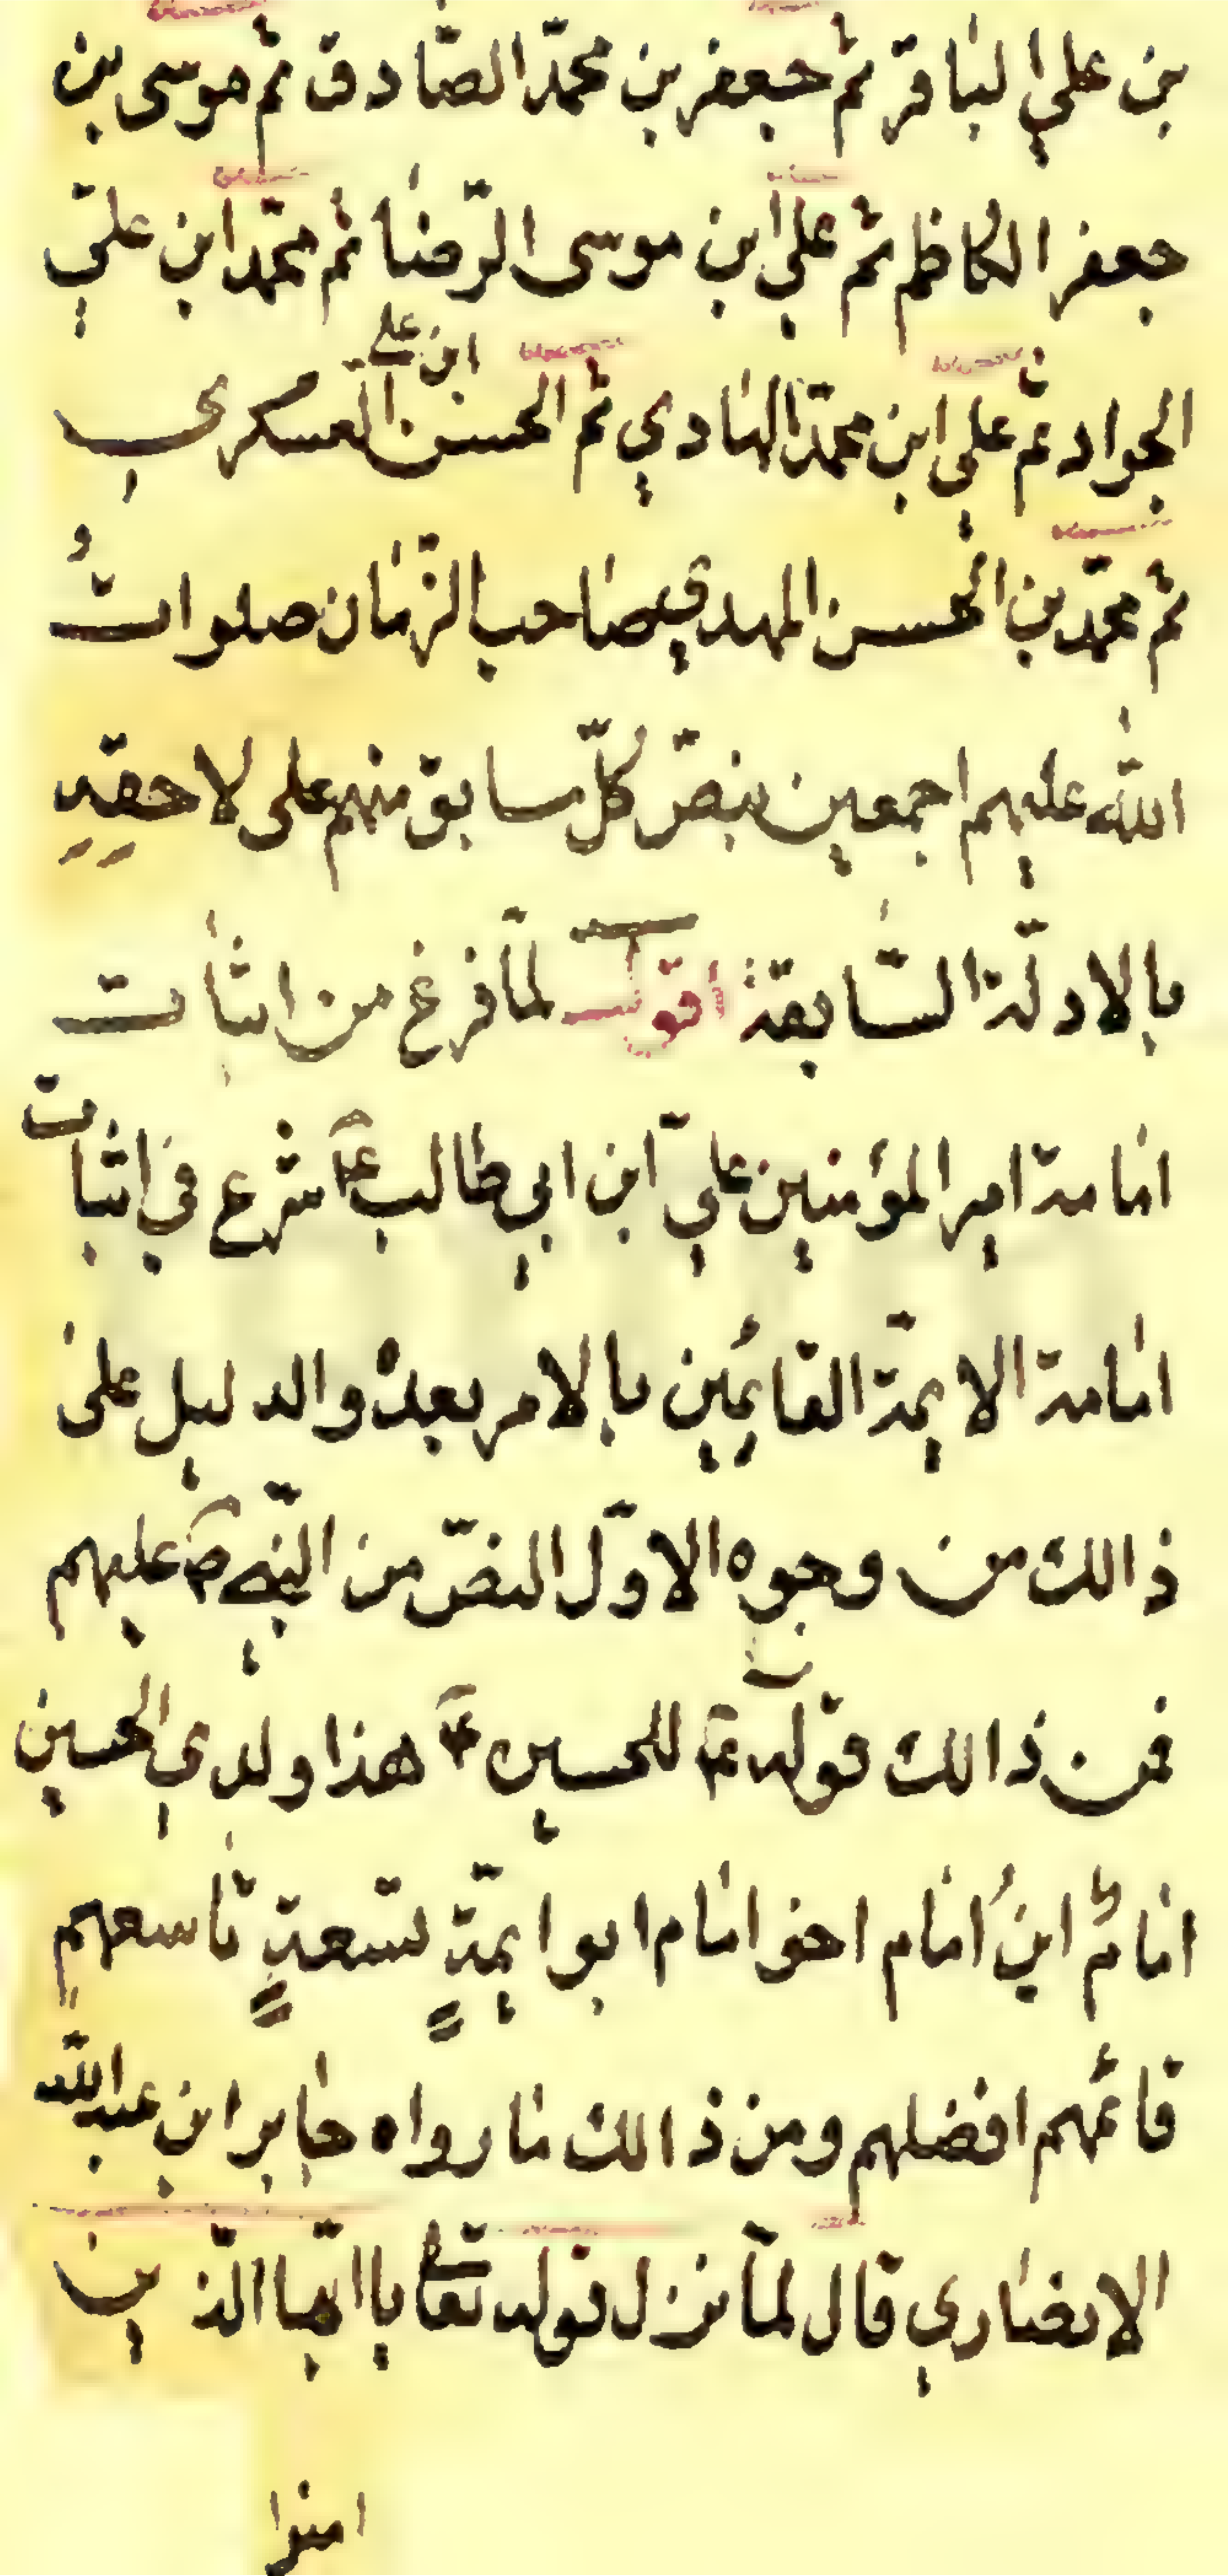 بن علي الباقر ثم جعفر بن محمّد الصّادق ثم موسى بن
جعفر الكاظم ثم علي ابن موسى الرّضا ثم محمّد ابن عليّ
الجواد ثم علي ابن محمّد الهادي ثم الحسن ابن علي العسكري
ثم محمّد بن الحسن المهدي صاحب الزّمان صلواتُ
اللّه عليهم اجمعين بنصّ كلّ سابق منهم على لاحقهِ
بالادلّة السّابقة اقول لمّا فرغ من اثبات
امامة امير المؤمنين عليّ ابن ابي طالب ع شرع في اثبات
امامة الايمّة القائمين بالامر بعدهُ والدليل على
ذالك من وجوه الاوّل النصّ من النّبي ص عليهم
فمن ذالك قوله ع للحسين ع هذا ولدي الحسين
امامٌ ابنُ امام اخو امام ابو ايمّةٍ تسعةٍ تاسعهم
قائمهم افضلهم ومن ذالك ما رواه جابر ابن عبد اللّه
الانصاري قال لمّا نزل قوله تعا يا ايّها الّذين
امنوا